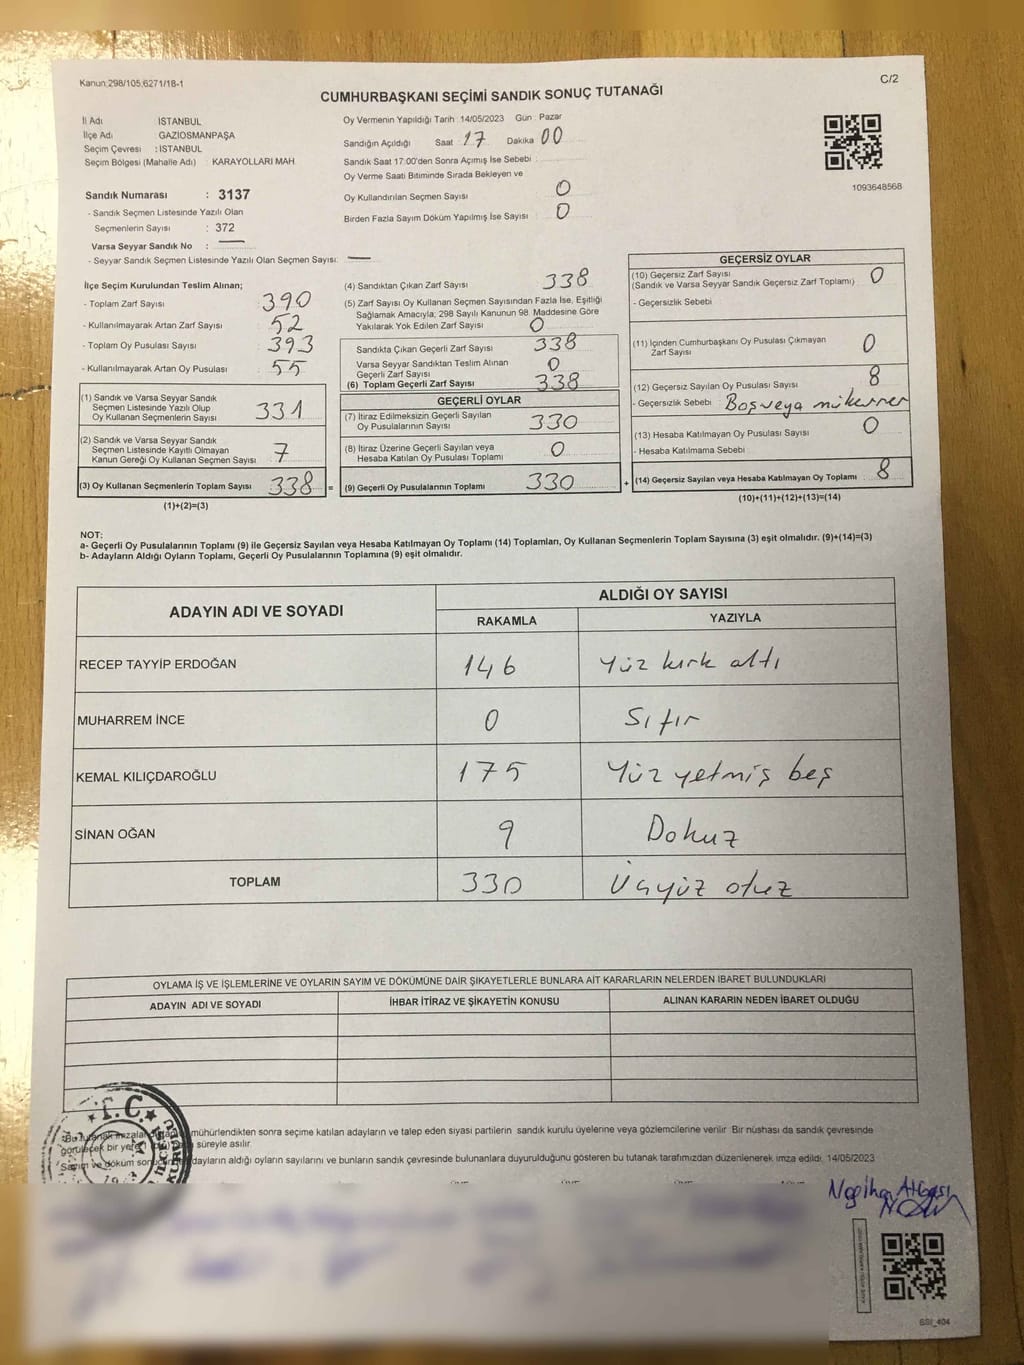 Kanun:298/105,6271/18-1
C/2
CUMHURBAŞKANI SEÇİMİ SANDIK SONUÇ TUTANAĞI
İl Adı İSTANBUL
İlçe Adı GAZİOSMANPAŞA
Seçim Çevresi : İSTANBUL
Seçim Bölgesi (Mahalle Adı) : KARAYOLLARI MAH.
Sandık Numarası : 3137
- Sandık Seçmen Listesinde Yazılı Olan
Seçmenlerin Sayısı : 372
Varsa Seyyar Sandık No : —
- Seyyar Sandık Seçmen Listesinde Yazılı Olan Seçmen Sayısı: —
Oy Vermenin Yapıldığı Tarih : 14/05/2023 Gün : Pazar
Sandığın Açıldığı Saat 17 Dakika 00
Sandık Saat 17:00'den Sonra Açımış İse Sebebi :
Oy Verme Saati Bitiminde Sırada Bekleyen ve
Oy Kullandırılan Seçmen Sayısı 0
Birden Fazla Sayım Döküm Yapılmış İse Sayısı 0
1093648568
İlçe Seçim Kurulundan Teslim Alınan;
- Toplam Zarf Sayısı : 390
- Kullanılmayarak Artan Zarf Sayısı : 52
- Toplam Oy Pusulası Sayısı : 393
- Kullanılmayarak Artan Oy Pusulası : 55
(1) Sandık ve Varsa Seyyar Sandık
Seçmen Listesinde Yazılı Olup
Oy Kullanan Seçmenlerin Sayısı 331
(2) Sandık ve Varsa Seyyar Sandık
Seçmen Listesinde Kayıtlı Olmayan
Kanun Gereği Oy Kullanan Seçmen Sayısı 7
(3) Oy Kullanan Seçmenlerin Toplam Sayısı 338 =
(1)+(2)=(3)
(4) Sandıktan Çıkan Zarf Sayısı 338
(5) Zarf Sayısı Oy Kullanan Seçmen Sayısından Fazla İse, Eşitliği
Sağlamak Amacıyla; 298 Sayılı Kanunun 98. Maddesine Göre
Yakılarak Yok Edilen Zarf Sayısı 0
Sandıkta Çıkan Geçerli Zarf Sayısı 338
Varsa Seyyar Sandıktan Teslim Alınan
Geçerli Zarf Sayısı 0
(6) Toplam Geçerli Zarf Sayısı 338
GEÇERLİ OYLAR
(7) İtiraz Edilmeksizin Geçerli Sayılan
Oy Pusulalarının Sayısı 330
(8) İtiraz Üzerine Geçerli Sayılan veya
Hesaba Katılan Oy Pusulası Toplamı 0
(9) Geçerli Oy Pusulalarının Toplamı 330 +
GEÇERSİZ OYLAR
(10) Geçersiz Zarf Sayısı 0
(Sandık ve Varsa Seyyar Sandık Geçersiz Zarf Toplamı)
- Geçersizlik Sebebi
(11) İçinden Cumhurbaşkanı Oy Pusulası Çıkmayan
Zarf Sayısı 0
(12) Geçersiz Sayılan Oy Pusulası Sayısı 8
- Geçersizlik Sebebi : Boş veya mükerrer
(13) Hesaba Katılmayan Oy Pusulası Sayısı 0
- Hesaba Katılmama Sebebi
(14) Geçersiz Sayılan veya Hesaba Katılmayan Oy Toplamı : 8
(10)+(11)+(12)+(13)=(14)
NOT:
a- Geçerli Oy Pusulalarının Toplamı (9) ile Geçersiz Sayılan veya Hesaba Katılmayan Oy Toplamı (14) Toplamları, Oy Kullanan Seçmenlerin Toplam Sayısına (3) eşit olmalıdır. (9)+(14)=(3)
b- Adayların Aldığı Oyların Toplamı, Geçerli Oy Pusulalarının Toplamına (9) eşit olmalıdır.
ADAYIN ADI VE SOYADI
ALDIĞI OY SAYISI
RAKAMLA YAZIYLA
RECEP TAYYİP ERDOĞAN 146 Yüz kırk altı
MUHARREM İNCE 0 Sıfır
KEMAL KILIÇDAROĞLU 175 Yüz yetmiş beş
SİNAN OĞAN 9 Dokuz
TOPLAM 330 Üçyüz otuz
OYLAMA İŞ VE İŞLEMLERİNE VE OYLARIN SAYIM VE DÖKÜMÜNE DAİR ŞİKAYETLERLE BUNLARA AİT KARARLARIN NELERDEN İBARET BULUNDUKLARI
ADAYIN ADI VE SOYADI İHBAR İTİRAZ VE ŞİKAYETİN KONUSU ALINAN KARARIN NEDEN İBARET OLDUĞU
T.C.
Bu tutanak mühürlendikten sonra seçime katılan adayların ve talep eden siyasi partilerin sandık kurulu üyelerine veya gözlemcilerine verilir. Bir nüshası da sandık çevresinde
görülecek bir yere süreyle asılır.
Sayım ve döküm adayların aldığı oyların sayılarını ve bunların sandık çevresinde bulunanlara duyurulduğunu gösteren bu tutanak tarafımızdan düzenlenerek imza edildi. 14/05/2023
BSI_404